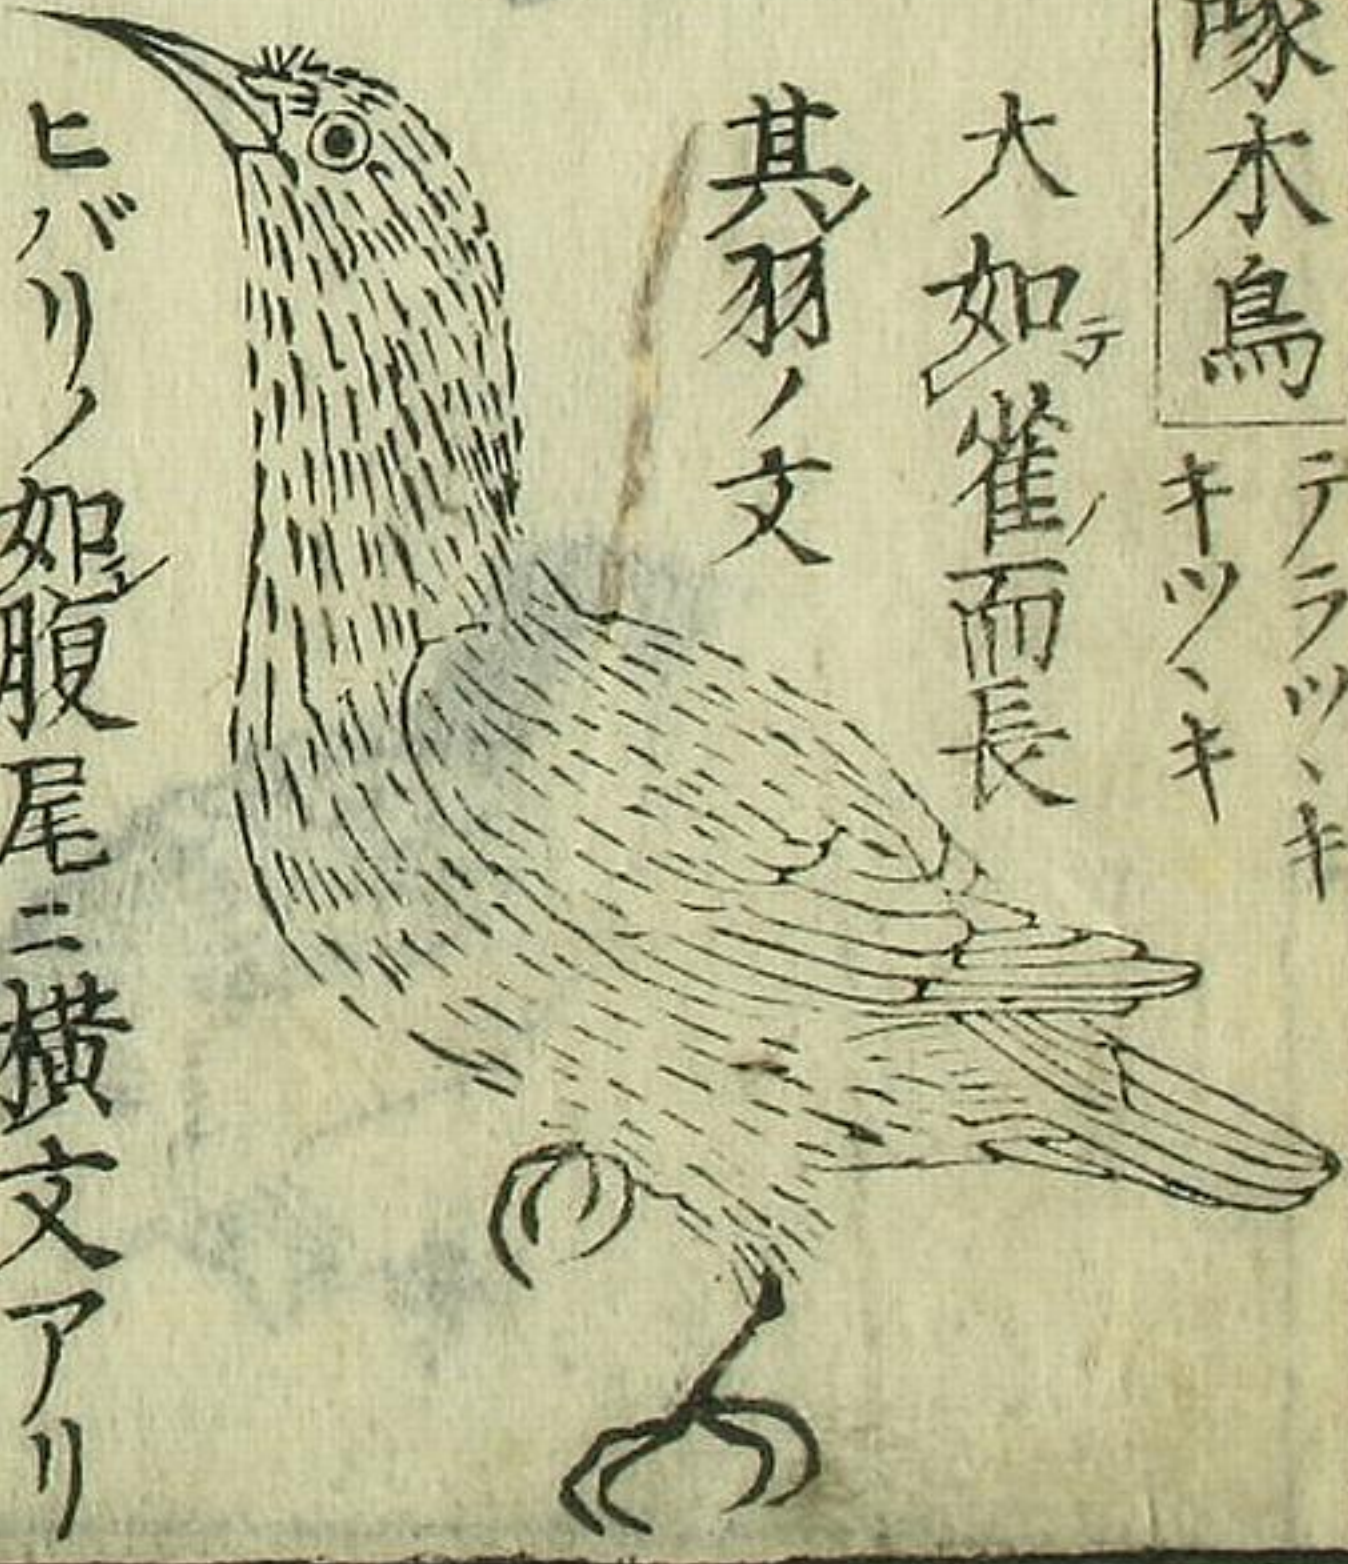 啄木鳥
テラツヽキ
キツヽキ
大如テ雀ノ而長
其羽ノ文
ヒバリノ如シ腹尾ニ横文アリ